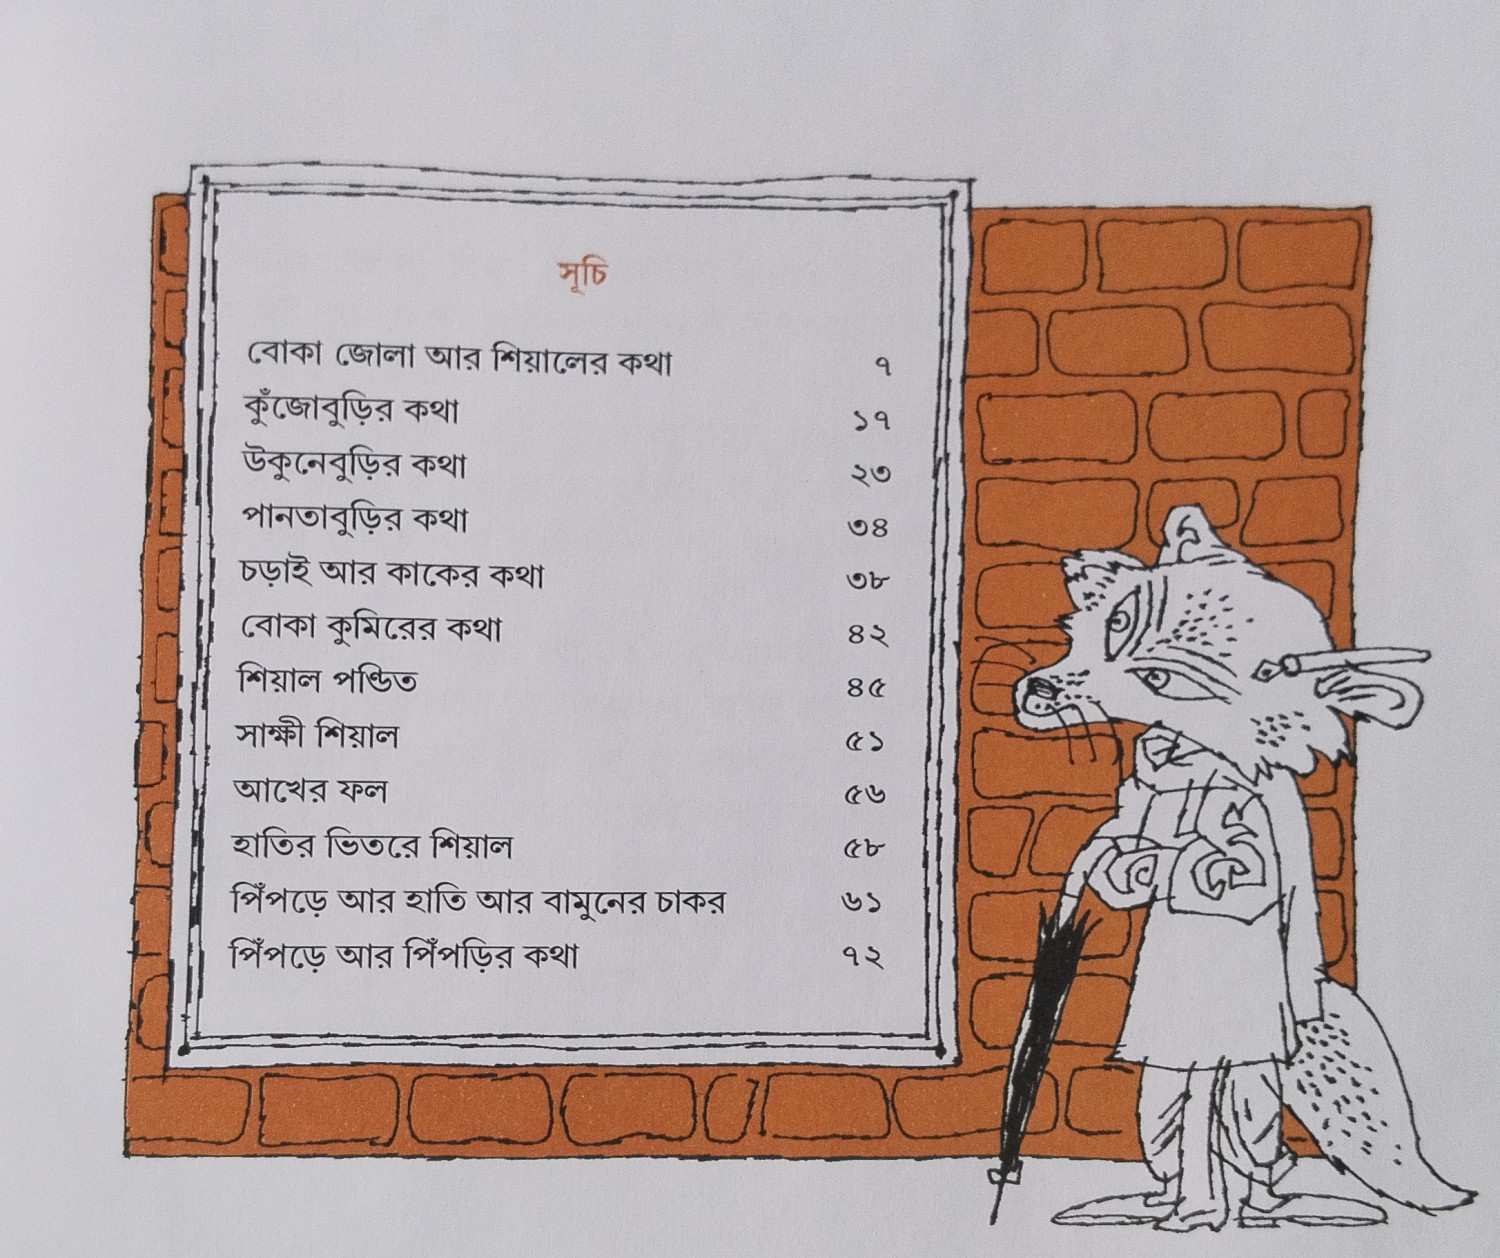 সূচি
বোকা জোলা আর শিয়ালের কথা ৭
কুঁজোবুড়ির কথা ১৭
উকুনেবুড়ির কথা ২৩
পানতাবুড়ির কথা ৩৪
চড়াই আর কাকের কথা ৩৮
বোকা কুমিরের কথা ৪২
শিয়াল পণ্ডিত ৪৫
সাক্ষী শিয়াল ৫১
আখের ফল ৫৬
হাতির ভিতরে শিয়াল ৫৮
পিঁপড়ে আর হাতি আর বামুনের চাকর ৬১
পিঁপড়ে আর পিঁপড়ির কথা ৭২